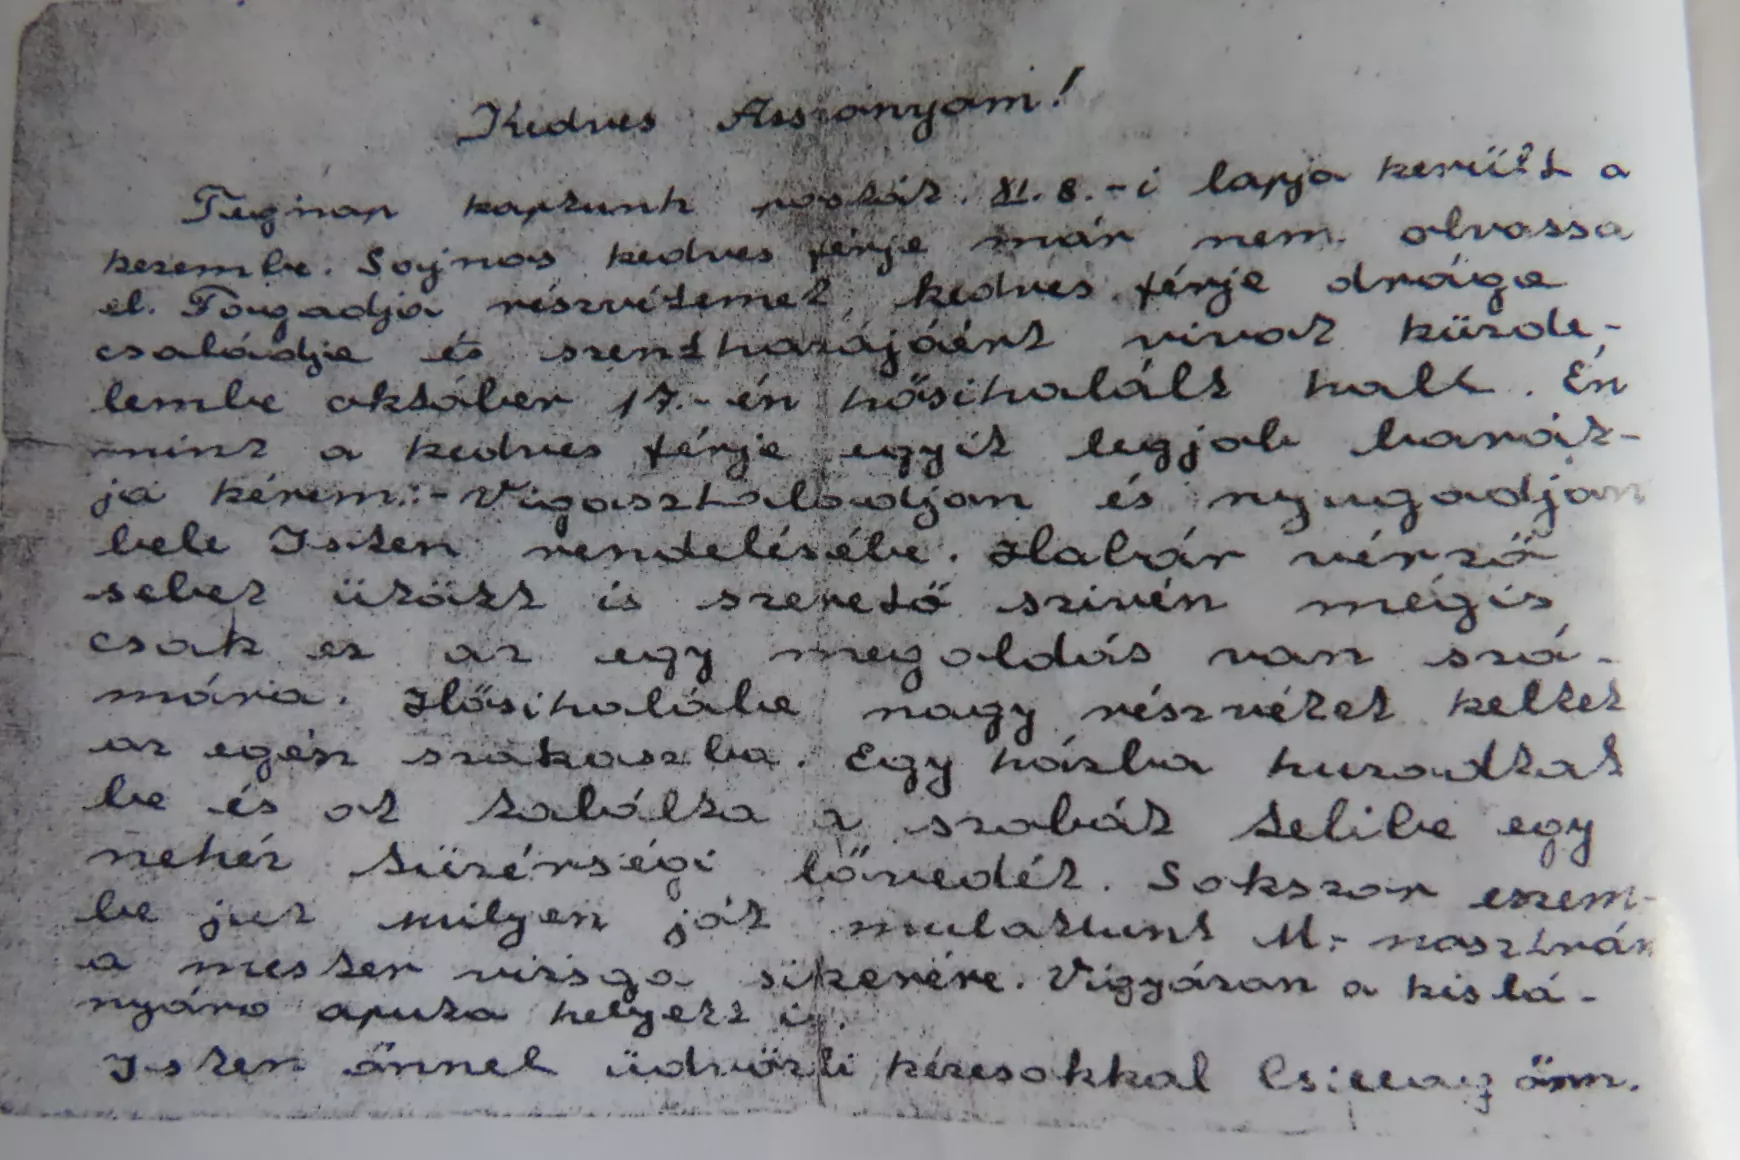 Kedves Asszonyam!
Tegnap kaptunk postát. XI. 8.-i lapja került a
kezembe. Sojnos kedves férje már nem olvassa
el. Fougadja részvétemet, kedves férje drága
családja és szent hazájáért vivot küzde-
lembe október 17.-én hősihalált halt. Én
mint a kedves férje egyit legjob barát-
ja kérem:- Vigasztalodjan és nyugodjan
bele Isten rendelésébe. Habár vérző
sebet ütött is szerető szivén mégis
csak ez az egy megoldás van szá-
mára. Hősihalába nagy részvétet keltet
az egén szakaszba. Egy házba huzodtat
be és ot találta a szobát telibe egy
nehéz tüzérségi lövedét. Sokszor eszem-
be jut milyen jót mulattunt M.-nosztrán
a mester vizsga sikerére. Vigyázan a kislá-
nyáro apuka helyett is.
Isten önnel üdvözli kézcsokkal